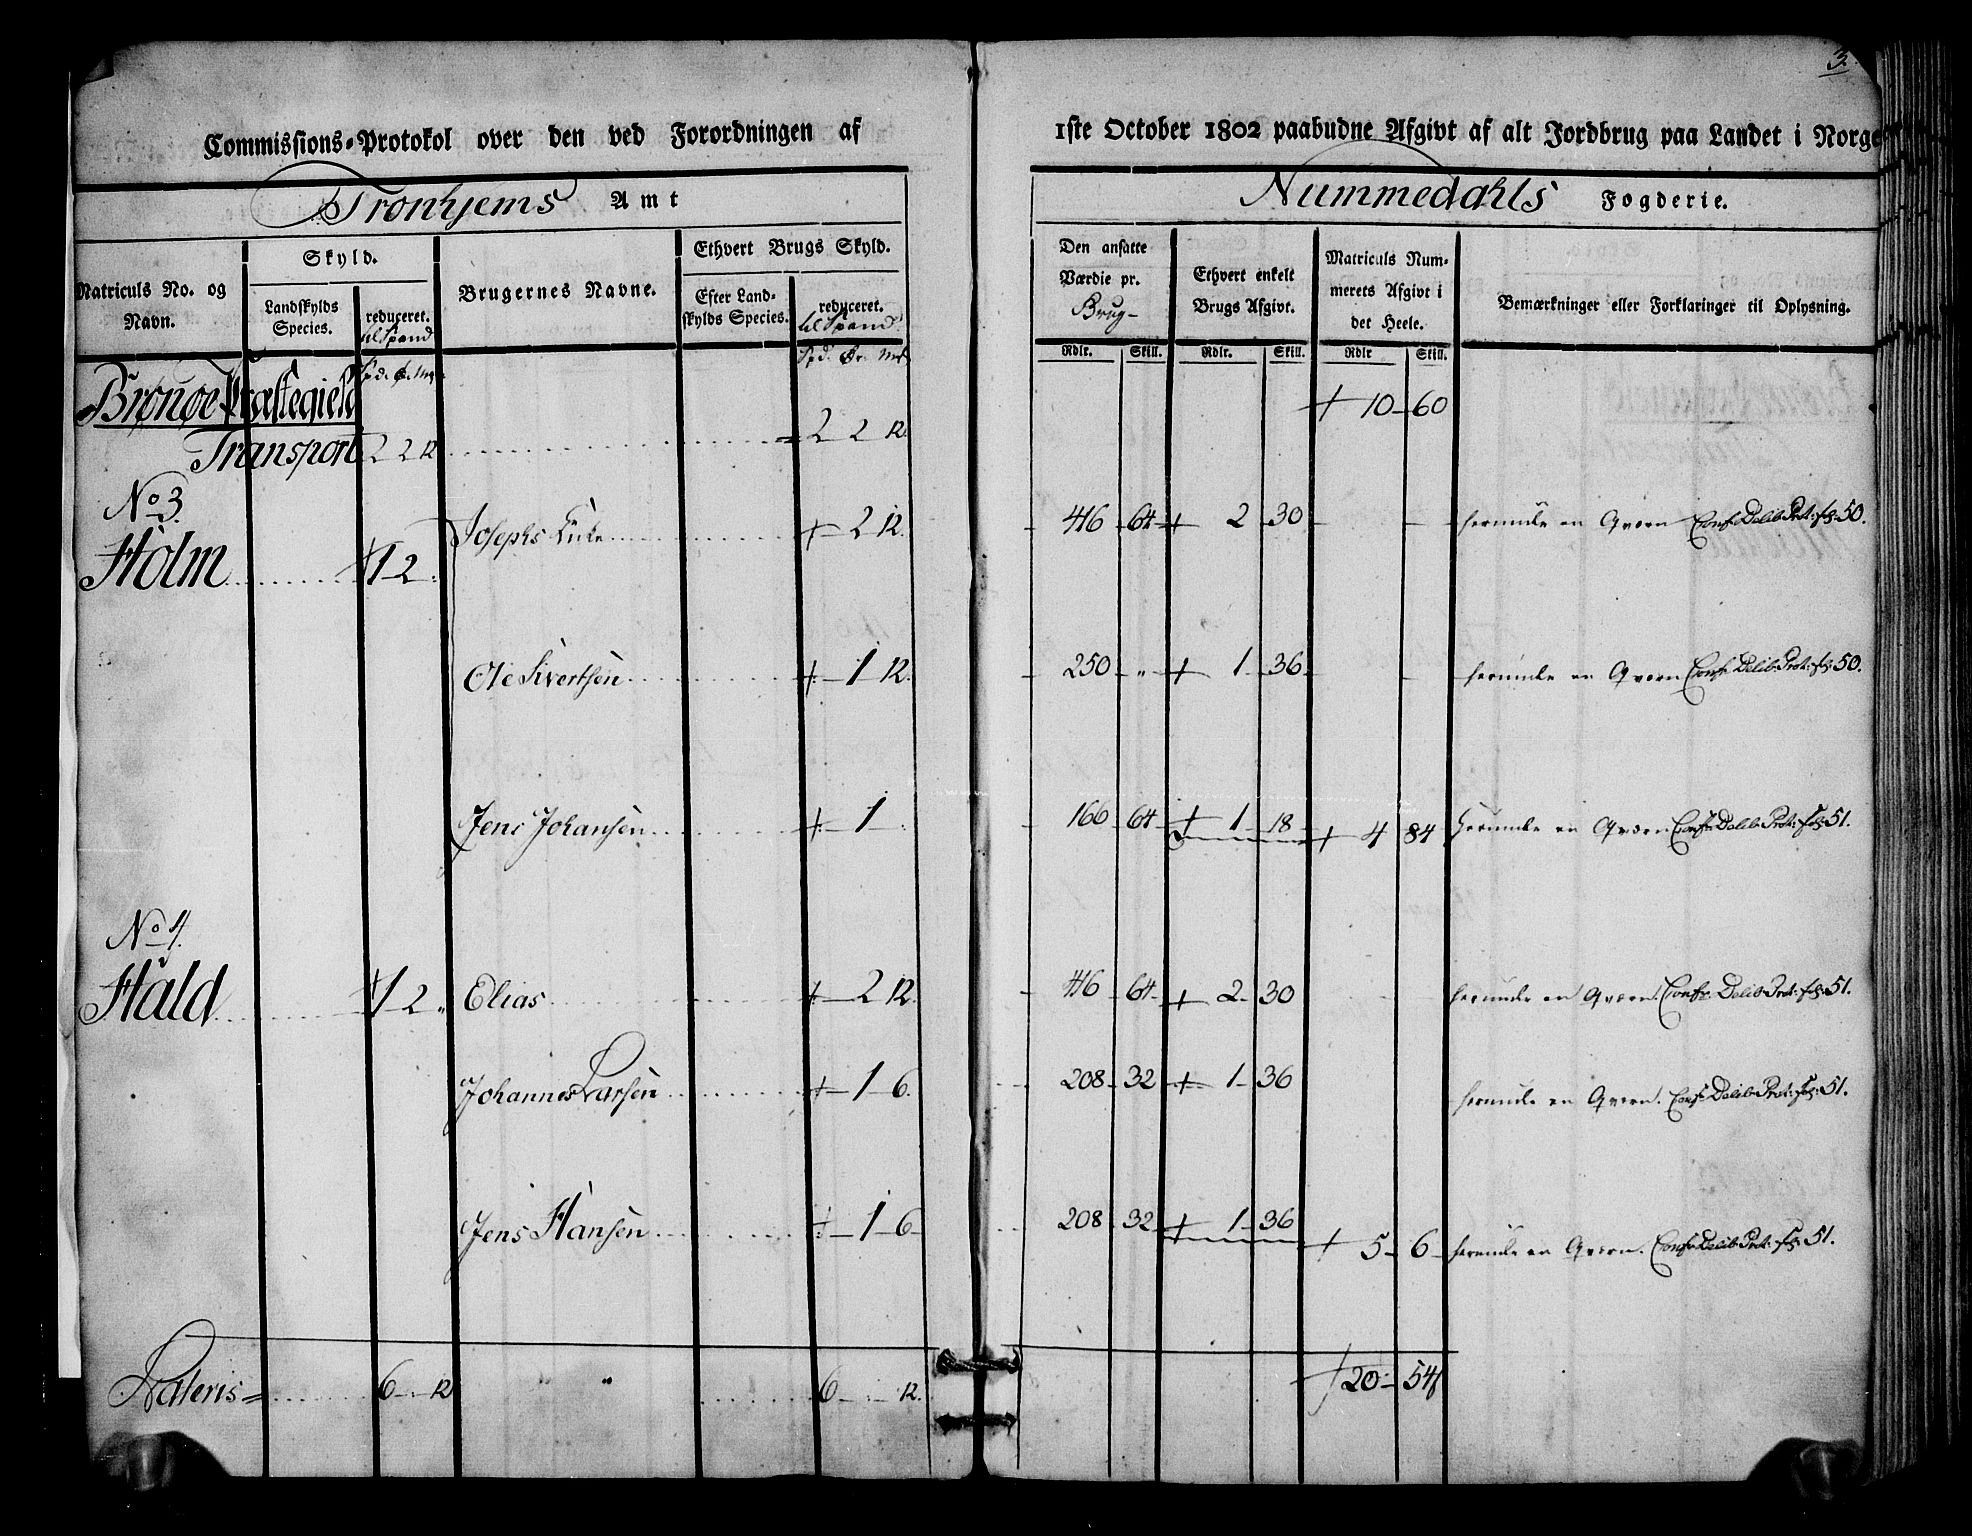 3.
Commissions-Protokol over den ved Forordningen af 1ste October 1802 paabudne Afgivt af alt Jordbrug paa Landet i Norge
Tronhjems Amt Nummedahls Fogderie.
Matriculs No. og Navn.
Skyld.
Landskylds Species.
reduceret. til Spand
Brugernes Navne.
Ethvert Brugs Skyld.
Efter Landskylds Species.
reduceret. til Spand
Den ansatte Værdie pr. Brug
Ethvert enkelt Brugs Afgivt.
Matriculs Nummerets Afgivt i det Heele.
Bemærkninger eller Forklaringer til Oplysning.
Rdlr. Skill. Rdlr. Skill. Rdlr Skill.
Brönöe Præstegield
Transport 2 2 12 2 2 12. 10 60
No 3.
Holm 1 2 Josephs 2 12. 416 64 2 30 herunde en Qværn Conf: Delib: Prot: fol: 50.
Ole Sivertsen 1 12. 250 " 1 36 herunde en Qværn Conf: Delib: Prot: fol: 50.
Jens Johansen 1 166 64 1 18 4 84 herunde en Qværn Conf: Delib: Prot: fol: 51.
No 4.
Hald 1 2 " Elias 2 12. 416 64 2 30 herunde en Qværn. Conf: Delib: Prot: fol: 51.
Johannes Larsen 1 6. 208 32 1 36 herunde en Qværn. Conf: Delib: Prot: fol: 51.
Jens Hansen 1 6 208 32 1 36 5 6 herunde en Qværn. Conf: Delib: Prot: fol: 51.
Lateris 6 12 " 6 12. 20 54